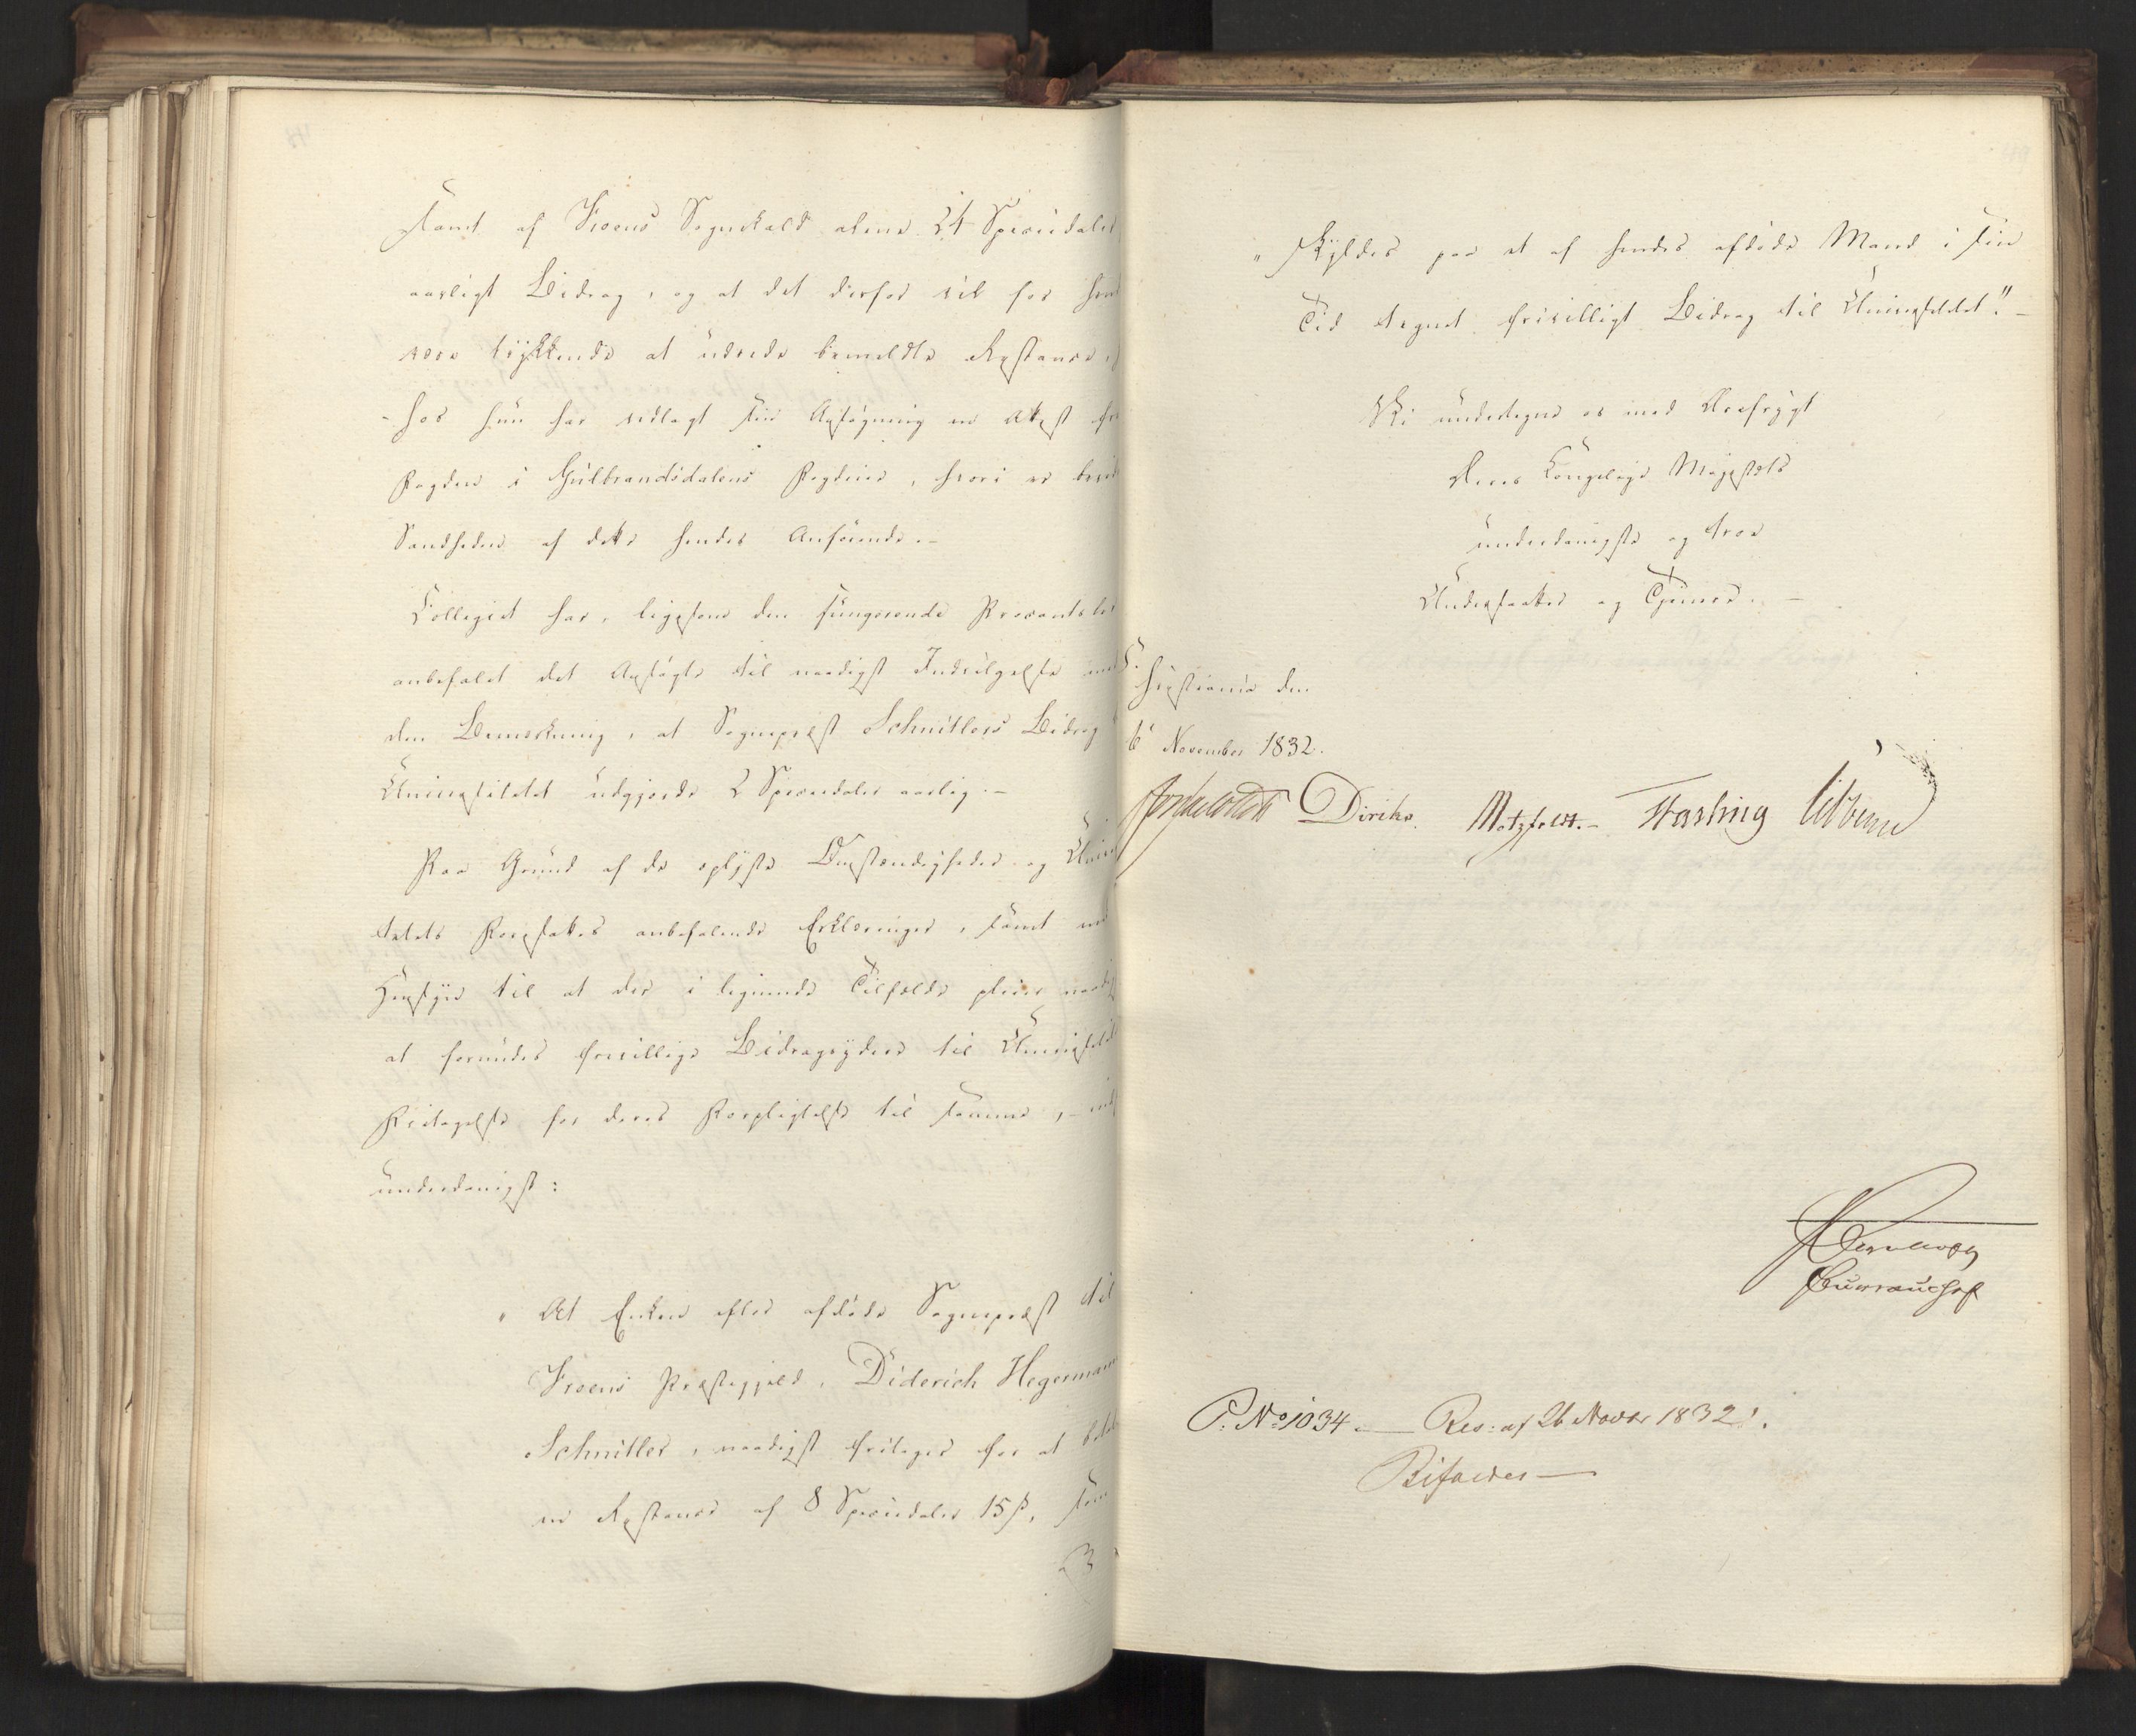 samt af Froens Sognekald alene 24 Speciedaler
aarligt Bidrag, og at det derfor vil for
være trykkende at udrede bemeldte Restance,
hos hun har vedlagt sin Ansøgning en Attest fra
Fogden i Gulbrandsdalens Fogderie, hvori er
Sandheden af dette hendes Anførende.-
Collegiet har, ligesom den fungerende Procantsler
anbefalet det Ansøgte til naadigst Indvilgelse med
den Bemærkning, at Sognepræst Schnitlers Bidrag
Universitetet udgjorde 2 Speciedaler aarlig.-
Paa Grund af de oplyste Omstændigheder og Univer
sitetets Foresattes anbefalende Erklæringer, samt med
Hensyn til at der i lignende Tilfælde pleier naadigst
at forundes frivillige Bidragsydere til Universitetet
Fritagelse for deres Forpligtelse til samme,
underdanigst:
" At Enken efter afdøde Sognepræst til
Froens Præstegjeld, Diderich Hegermann
Schnitler, naadigst fritages for at betale
en Restance af 8 Speciedaler 15 ß, som
" skyldes paa et af hendes afdøde Mand i sin
Tid tegnet frivilligt Bidrag til Universitetet."-
Vi undertegne os med Ærefrygt
Deres Kongelige Majestæts
underdanigste og troe
Undersaatter og Tjenere.-
Christiania den
6 November 1832.
Diriks. Motzfeldt.- Fasting Vibe
P. No 1034. — Res: af 26 Novbr 1832.
Bifaldes —